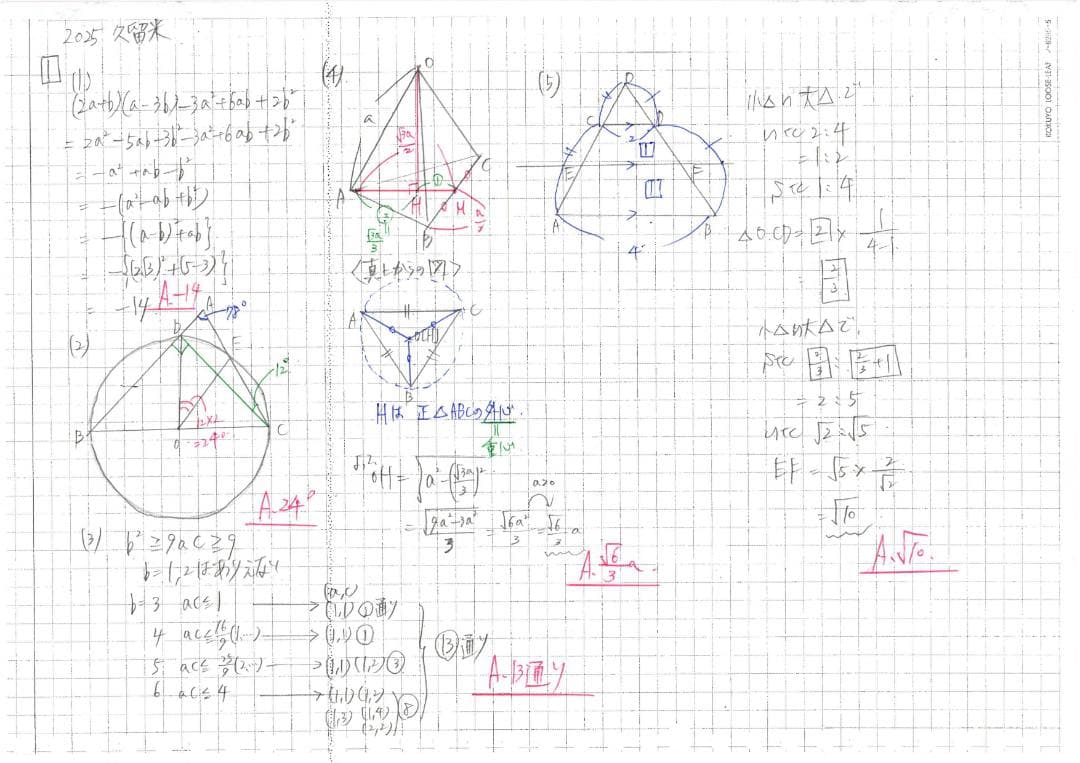 2025 久留米
1
(1)
(2a+b)(a-3b)-3a²+6ab+2b²
= 2a²-5ab-3b²-3a²+6ab+2b²
= -a²+ab-b²
= -(a²-ab+b²)
= -{(a-b)²+ab}
= -{(2√3)²+(5-3)}
= -14
A.-14
(2)
A
78°
D
E
12°
B
O
C
12×2
=24°
A.24°
(3) b²≧9ac≧9
b=1,2はありえない
(a,c)
b=3 ac≦1 → (1,1) ①通り
4 ac≦16/9(1,…) → (1,1) ①
5 ac≦25/9(2,…) → (1,1)(1,2) ③
6 ac≦4 → (1,1)(1,2)
(1,3)(1,4)
(2,2) ⑧
⑬通り
A.13通り
(4)
O
a
√3a/2
C
A
H
M
①
②
√3a/3
B
a/2
<真上からの図>
A
C
O(H)
B
Hは正△ABCの外心
重心
OH=√a²-(√3a/3)²
a>0
=√9a²-3a²/3=√6a²/3=√6/3 a
A.√6/3 a.
(5)
O
C
D
2
1
E
F
1
A
B
4
小△い大△で
いtc 2:4
=1:2
Stc 1:4
△OCD=2×1/4-1
=2/3
小△い大△で
Stc 2/3:2/3+1
=2:5
いtc √2:√5
EF=√5×2/√2
=√10
A.√10.
KOKUYO LOOSE-LEAF